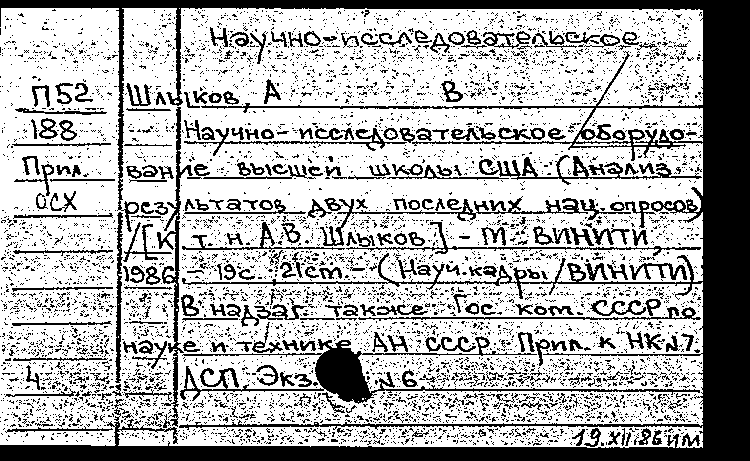 Научно-исследовательское
П52 Шлыков, А В
188 Научно-исследовательское оборудо-
Прил. вание высшей школы США (Анализ
ОСХ результатов двух последних нац. опросов)
/[К. т. н. А.В. Шлыков] - М ВИНИТИ,
1986. - 19с. 21cm. - (Науч. кадры / ВИНИТИ)
В надзаг. также: Гос. ком. СССР по
науке и технике, АН СССР. Прил. к НК №7.
4 ДСП. Экз. №6.
19.XII.86